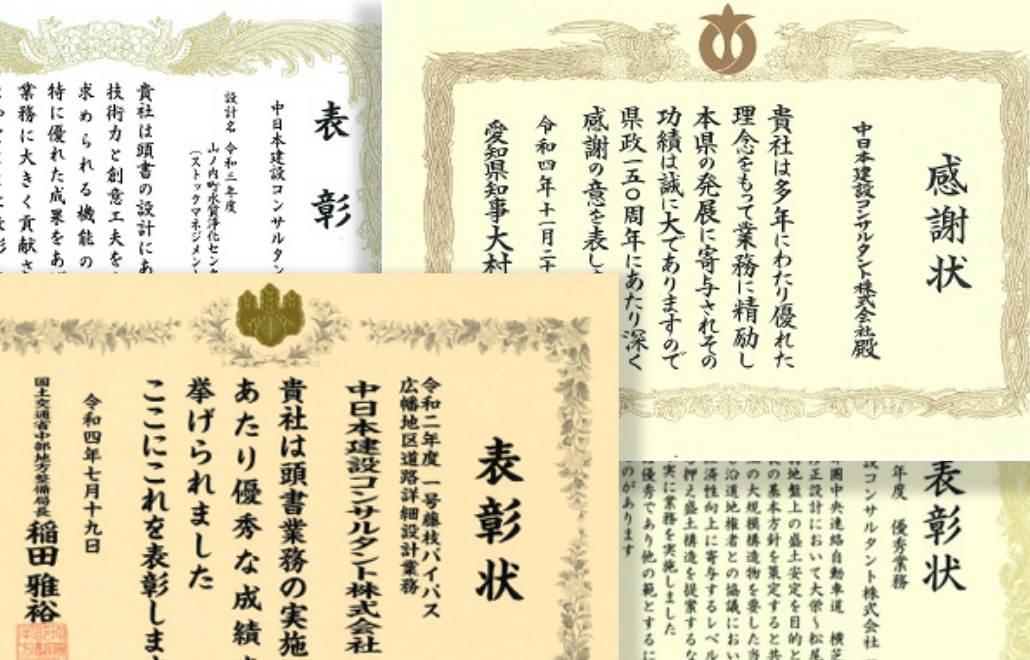 表彰
中日本建設コンサルタン
設計名 令和三年度
山ノ内町水質浄化センタ
(ストックマネジメント
貴社は頭書の設計にあ
技術力と創意工夫を
求められる機能の
特に優れた成果をあ
業務に大きく貢献さ
感謝状
中日本建設コンサルタント株式会社殿
貴社は多年にわたり優れた
理念をもって業務に精励し
本県の発展に寄与されその
功績は誠に大でありますので
県政一五〇周年にあたり深く
感謝の意を表し
令和四年十一月二十
愛知県知事大村
表彰状
令和二年度 一号藤枝バイパス
広幡地区道路詳細設計業務
中日本建設コンサルタント株式会社
貴社は頭書業務の実施
あたり優秀な成績
挙げられました
ここにこれを表彰しま
令和四年七月十九日
国土交通省中部地方整備局長 稲田雅裕
表彰状
年度 優秀業務
設コンサルタント株式会社
圏中央連絡自動車道 横芝
修正設計において大栄～松尾
地盤上の盛土安定を目的と
長の基本方針を策定すると共
の大規模構造物を要した当
沿道地権者との協議におい
済性向上に寄与するレベル
押え盛土構造を提案するな
実に業務を実施しました
優秀であり他の範とするに
のがあります